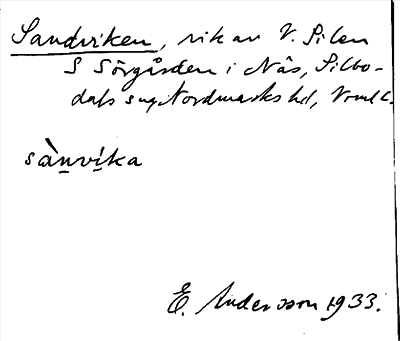 Sandviken, vik av V. Silen
S Sörgården i Nås, Silbo-
dals sn, Nordmarks hd, Vrml l.
sànvíka
E. Andersson 1933.